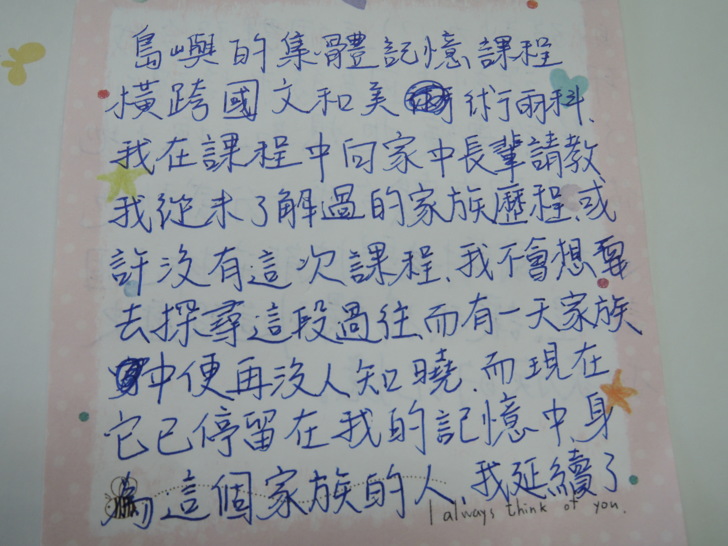 島嶼的集體記憶課程
橫跨國文和美術兩科、
我在課程中向家中長輩請教
我從未了解過的家族歷程、或
許沒有這次課程、我不會想要
去探尋這段過往、而有一天家族
中便再沒人知曉、而現在
它已停留在我的記憶中、身
為這個家族的人、我延續了
I always think of you.